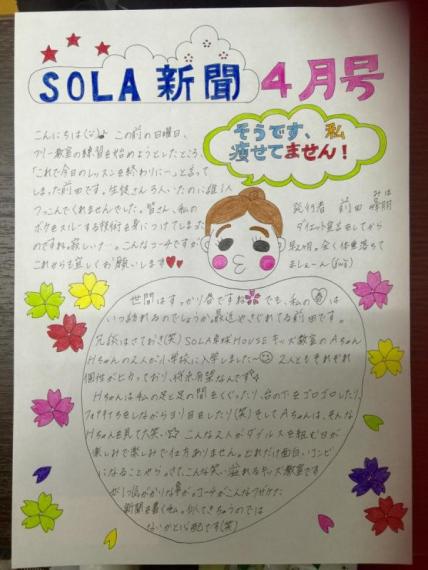 SOLA 新聞 4月号
そうです、私
痩せてません!
こんにちは この前の日曜日、
フリー教室の練習を始めようとしたところ、
「これで今日のレッスンを終わりにー」と言って
しまった前田です。生徒さん6人いたのに誰1人
つっこんでくれませんでした。皆さん、私の
ボケをスルーする技術を身につけてしまった
のですね。寂しいナー。こんなコーチですが
これからも宜しくお願いします
発行者 前田 みほ
ダイエット宣言をしてから
早2ヶ月。全く体重落ちて
ましぇーん
世間はすっかり春ですね でも、私の春は
いつ訪れるのでしょうか。最近やさぐれてる前田です。
冗談はさておき(笑) SOLA卓球HOUSEキッズ教室のAちゃん
Hちゃんの2人が小学校に入学しました〜 2人ともそれぞれ
個性がピカっており、将来有望なんです
Hちゃんは私の足と足の間をくぐったり、台の下をゴロゴロしたり、
しながら をしたり(笑)そしてAちゃんは、そんな
Hちゃんを見て大笑い こんな2人がダブルスを組む日が
楽しみで楽しみで仕方ありません。どれだけ面白いコンビ
になることやら。さて、こんな笑い溢れるキッズ教室です
が1つ気がかりな事が。コーチがこんなフザけた
新聞を書く私。似てきちゃうのでは
ないかと心配です(笑)